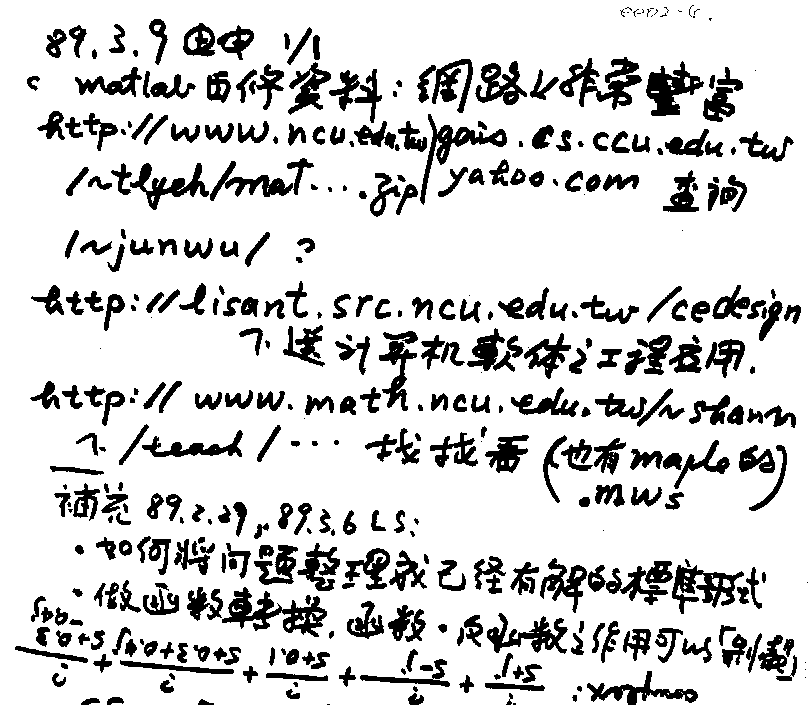 89.3.9 1/1
matlab 百件資料: 網路上非常豐富
http://www.ncu.edu.tw gais.cs.ccu.edu.tw
/~tlyeh/mat....zip yahoo.com 查詢
/~junwu/ ?
http://lisant.src.ncu.edu.tw/cedesign
選計算机軟体之工程应用.
http://www.math.ncu.edu.tw/~shann
/teach/... 找找看(也有maple的)
.mws
補充 89.2.29, 89.3.6 LS:
·如何將问題整理成已经有解的標準形式
·做函数轉換, 函数·反函数之作用可以